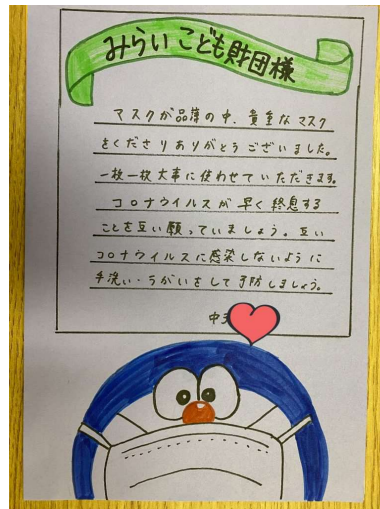 みらいこども財団様
マスクが品薄の中、貴重なマスク
をくださりありがとうございました。
一枚一枚大事に使わせていただきます。
コロナウイルスが早く終息する
ことを互い願っていましょう。互い
コロナウイルスに感染しないように
手洗い・うがいをして予防しましょう。
中